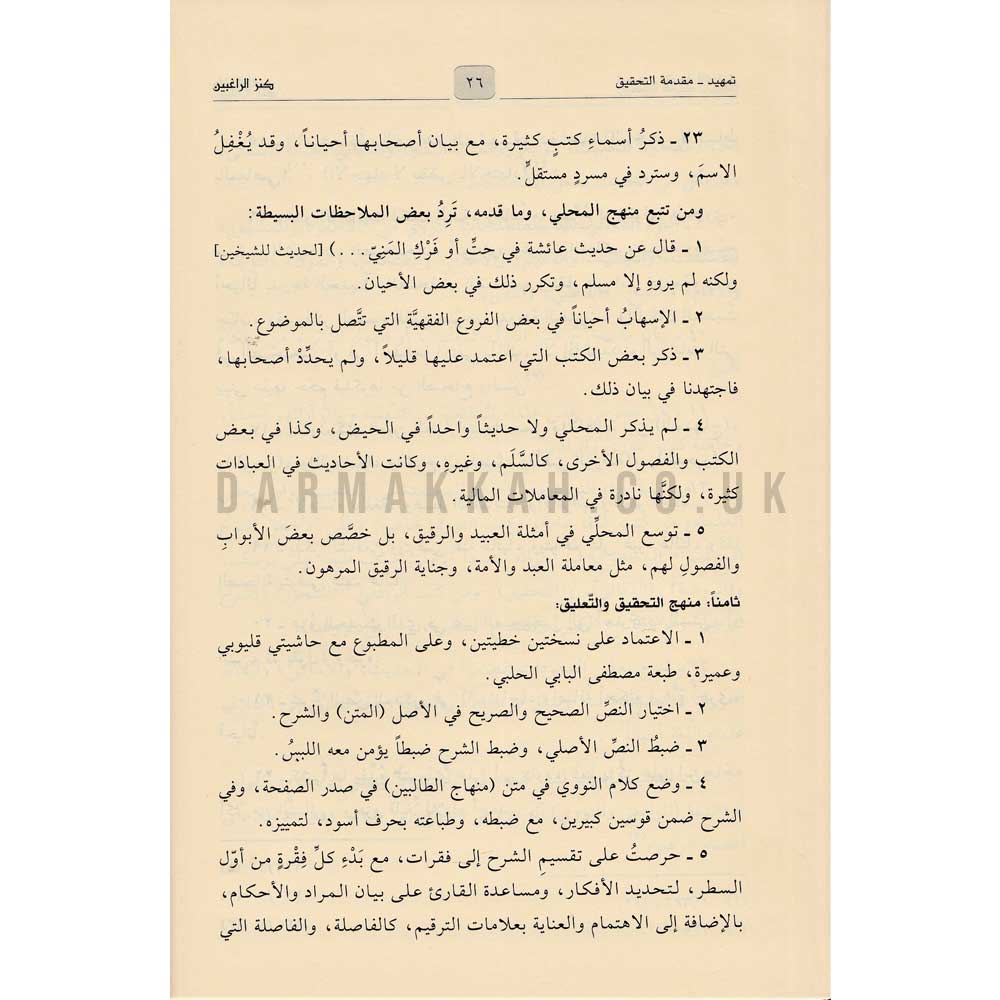 تمهيد ـ مقدمة التحقيق
٢٦
كنز الراغبين
٢٣ ـ ذكرُ أسماءِ كتبٍ كثيرة، مع بيان أصحابها أحياناً، وقد يُغْفِلُ
الاسمَ، وسترد في مسردٍ مستقلٍّ.
ومن تتبع منهج المحلي، وما قدمه، تَرِدُ بعض الملاحظات البسيطة:
١ ـ قال عن حديث عائشة في حتِّ أو فَرْكِ المَنِيّ...) [لحديث للشيخين]
ولكنه لم يروهِ إلا مسلم، وتكرر ذلك في بعض الأحيان.
٢ ـ الإسهابُ أحياناً في بعض الفروع الفقهيَّة التي تتَّصل بالموضوع.
٣ ـ ذكر بعض الكتب التي اعتمد عليها قليلاً، ولم يحدِّدْ أصحابها،
فاجتهدنا في بيان ذلك.
٤ ـ لم يذكر المحلي ولا حديثاً واحداً في الحيض، وكذا في بعض
الكتب والفصول الأخرى، كالسَّلَم، وغيرهِ، وكانت الأحاديث في العبادات
كثيرة، ولكنَّها نادرة في المعاملات المالية.
DARMAKKAH.CO.UK
٥ ـ توسع المحلِّي في أمثلة العبيد والرقيق، بل خصَّص بعضَ الأبوابِ
والفصولِ لهم، مثل معاملة العبد والأمة، وجناية الرقيق المرهون.
ثامناً: منهج التحقيق والتّعليق:
١ ـ الاعتماد على نسختين خطيتين، وعلى المطبوع مع حاشيتي قليوبي
وعميرة، طبعة مصطفى البابي الحلبي.
٢ ـ اختيار النصِّ الصحيح والصريح في الأصل (المتن) والشرح.
٣ ـ ضبطُ النصِّ الأصلي، وضبط الشرح ضبطاً يؤمن معه اللبسُ.
٤ ـ وضع كلام النووي في متن (منهاج الطالبين) في صدر الصفحة، وفي
الشرح ضمن قوسين كبيرين، مع ضبطه، وطباعته بحرف أسود، لتمييزه.
٥ ـ حرصتُ على تقسيمِ الشرح إلى فقرات، مع بَدْءِ كلِّ فِقْرةٍ من أوّل
السطر، لتحديد الأفكار، ومساعدة القارئ على بيان المراد والأحكام،
بالإضافة إلى الاهتمام والعناية بعلامات الترقيم، كالفاصلة، والفاصلة التي